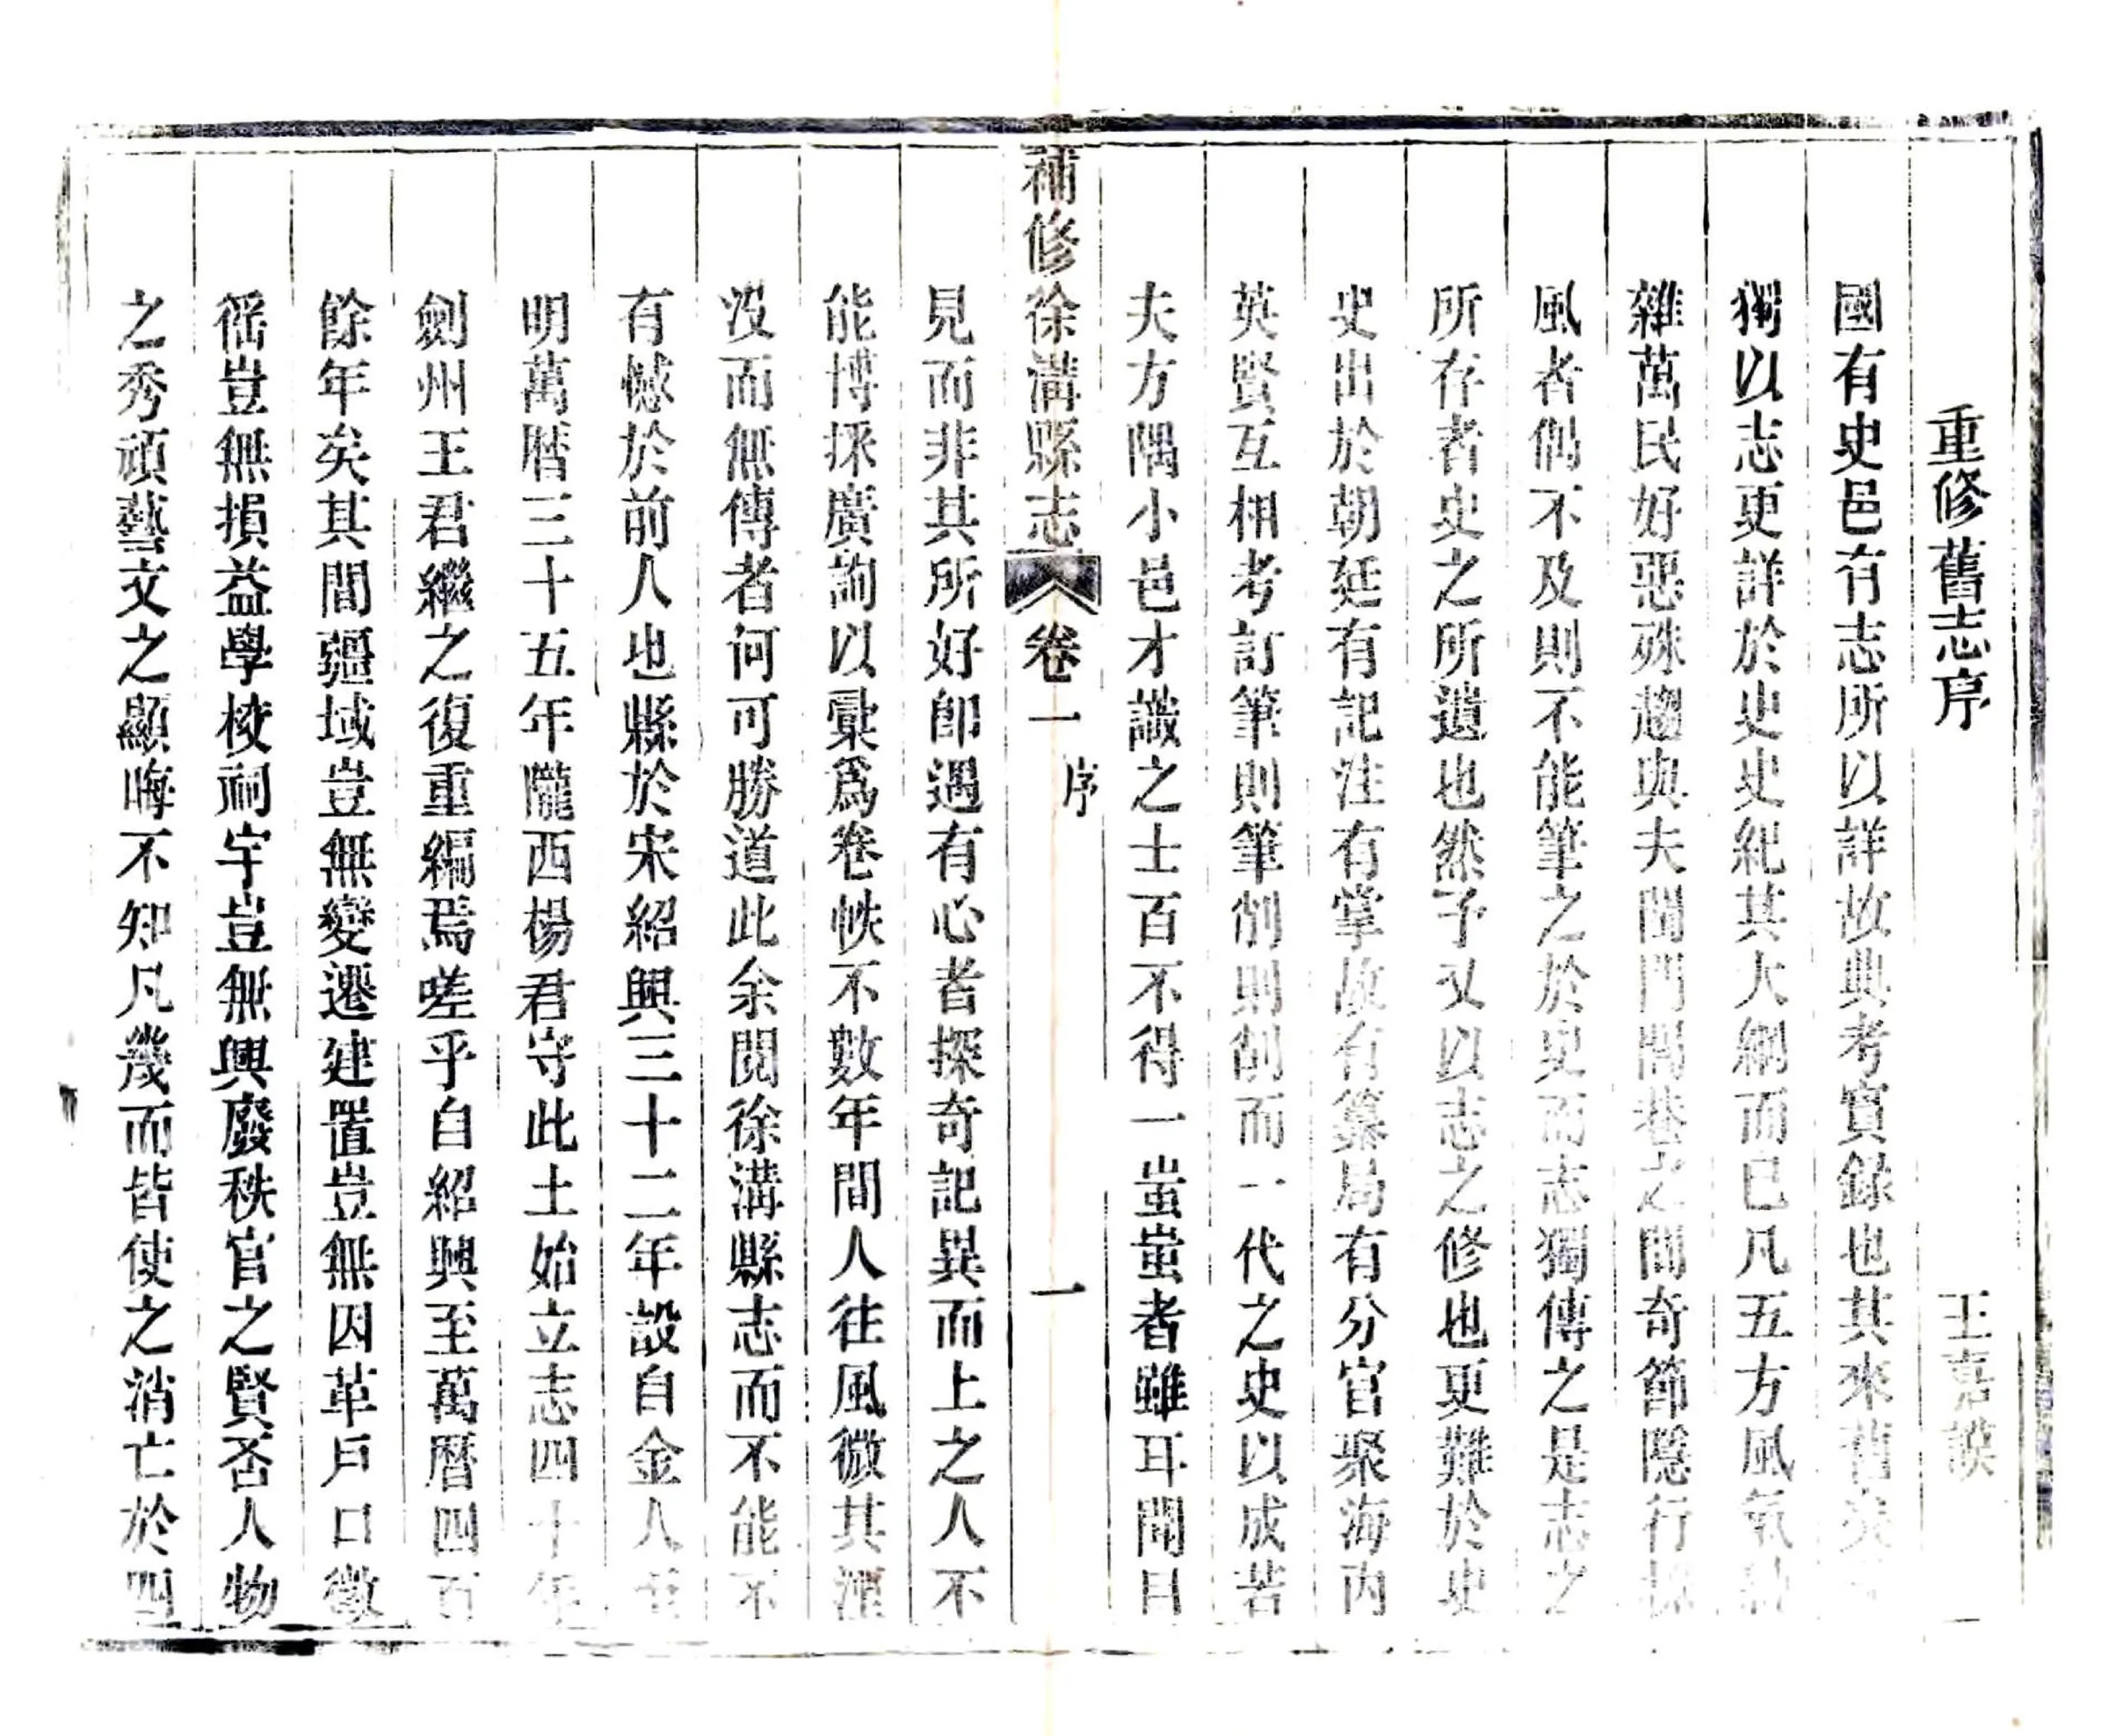 重修舊志序
王嘉謨
國有史邑有志所以詳故典考實錄也其來舊矣
獨以志更詳於史史紀其大綱而已凡五方風氣
雜萬民好惡殊趨與夫閭門閭巷之間奇節隱行採
風者偶不及則不能筆之於史而志獨傳之是志之
所存者史之所遺也然予又以志之修也更難於史
史出於朝廷有記注有掌故有纂局有分官聚海內
英賢互相考訂筆則筆削則削而一代之史以成若
夫方隅小邑才識之士百不得一蚩蚩者雖耳聞目
補修徐溝縣志 卷一 序 一
見而非其所好卽遇有心者探奇記異而上之人不
能博採廣詢以彙爲卷帙不數年間人往風微其湮
沒而無傳者何可勝道此余閱徐溝縣志而不能不
有憾於前人也縣於宋紹興三十二年設自金人至
明萬曆三十五年隴西楊君守此土始立志四十年
劍州王君繼之復重編焉嗟乎自紹興至萬曆四百
餘年矣其間疆域豈無變遷建置豈無因革戶口徵
徭豈無損益學校祠宇豈無興廢秩官之賢否人物
之秀頑藝文之顯晦不知凡幾而皆使之消亡於四